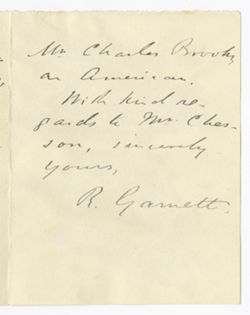 Mr. Charles Brooks,
an American.
With kind re-
gards to Mr. Ches-
son, sincerely
yours,
R. Garnett.